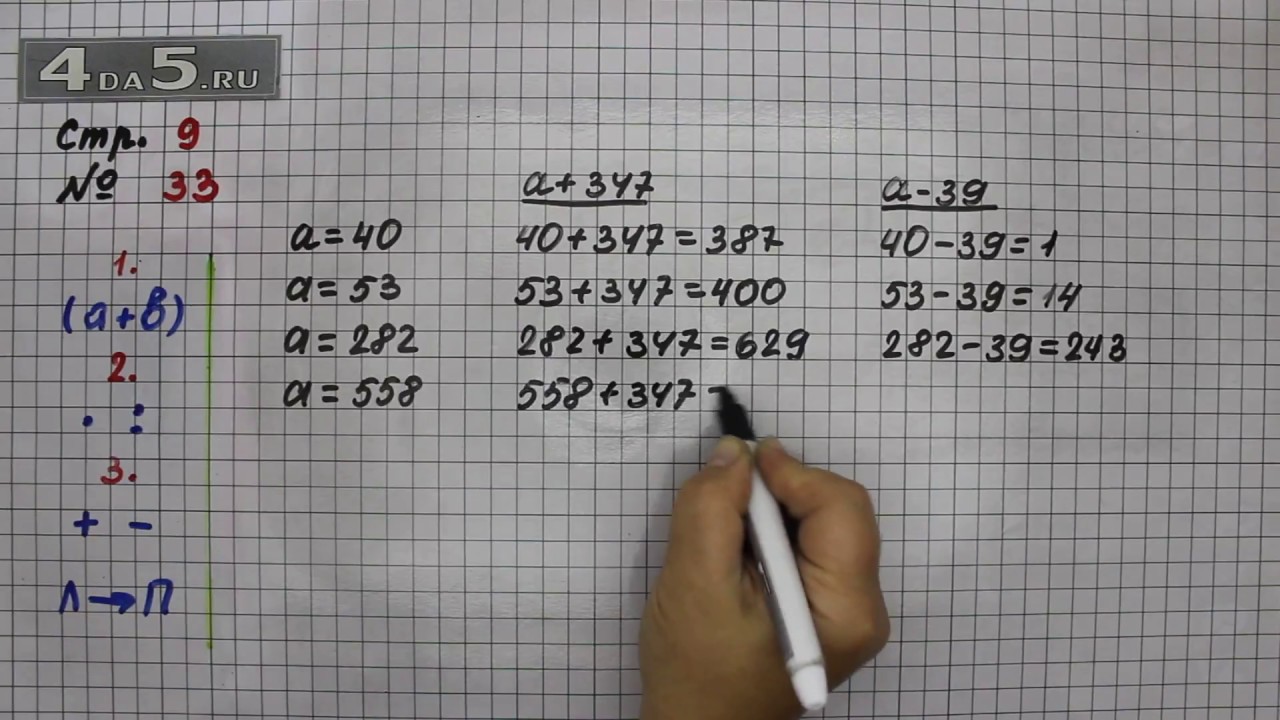 4DA5.RU
Стр. 9
№ 33
1.
(a+b)
2.
· :
3.
+ -
Л→П
a=40
a=53
a=282
a=558
a+347
40+347=387
53+347=400
282+347=629
558+347
a-39
40-39=1
53-39=14
282-39=243